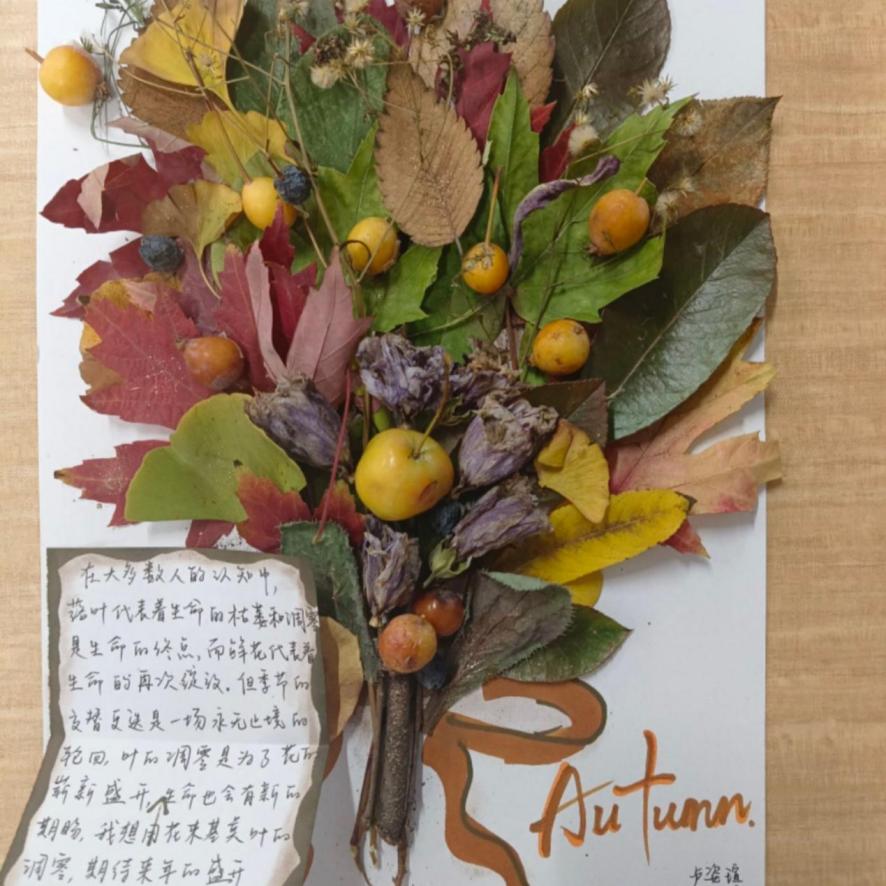 在大多数人的认知中,
落叶代表着生命的枯萎和凋零
是生命的终点,而鲜花代表着
生命的再次绽放.但季节的
交替更迭是一场永无止境的
轮回,叶的凋零是为了花的
崭新盛开,生命也会有新的
期盼,我想用花束基奠叶的
凋零,期待来年的盛开
Autumn.
卢姿谊